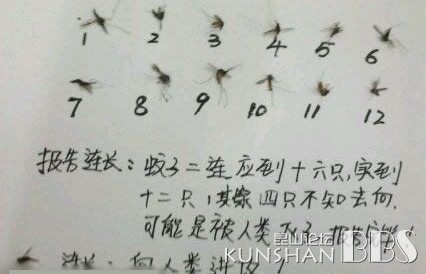 1 2 3 4 5 6
7 8 9 10 11 12
报告连长：蚊子二连应到十六只，实到
十二只，其余四只不知去向。
可能是被人类灭了，报告完毕。
连长：向人类进攻！
昆山论坛
KUNSHAN BBS